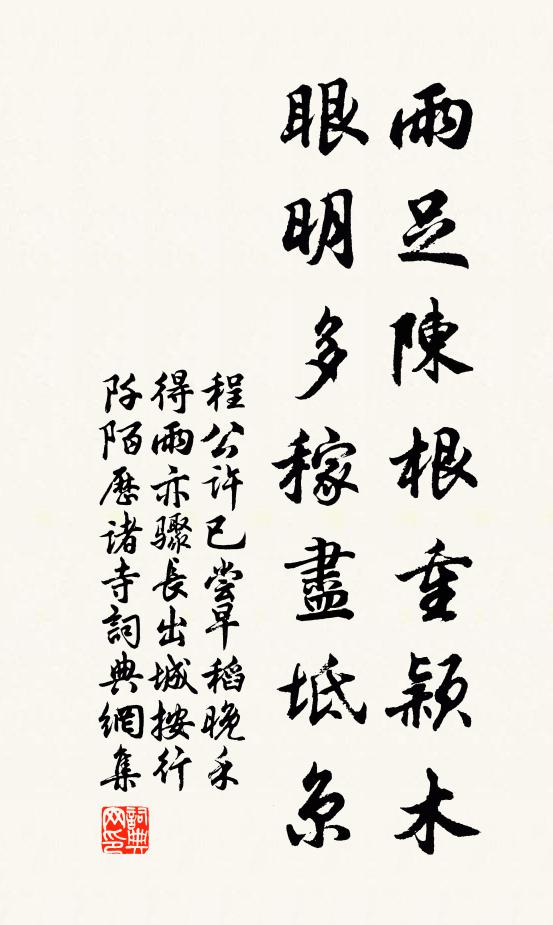 雨足陳根重穎木
眼明多稼盡坻京
程公許已嘗早稻晚禾
得雨亦驟長出城按行
阡陌歷諸寺詞典網集
詞典網印